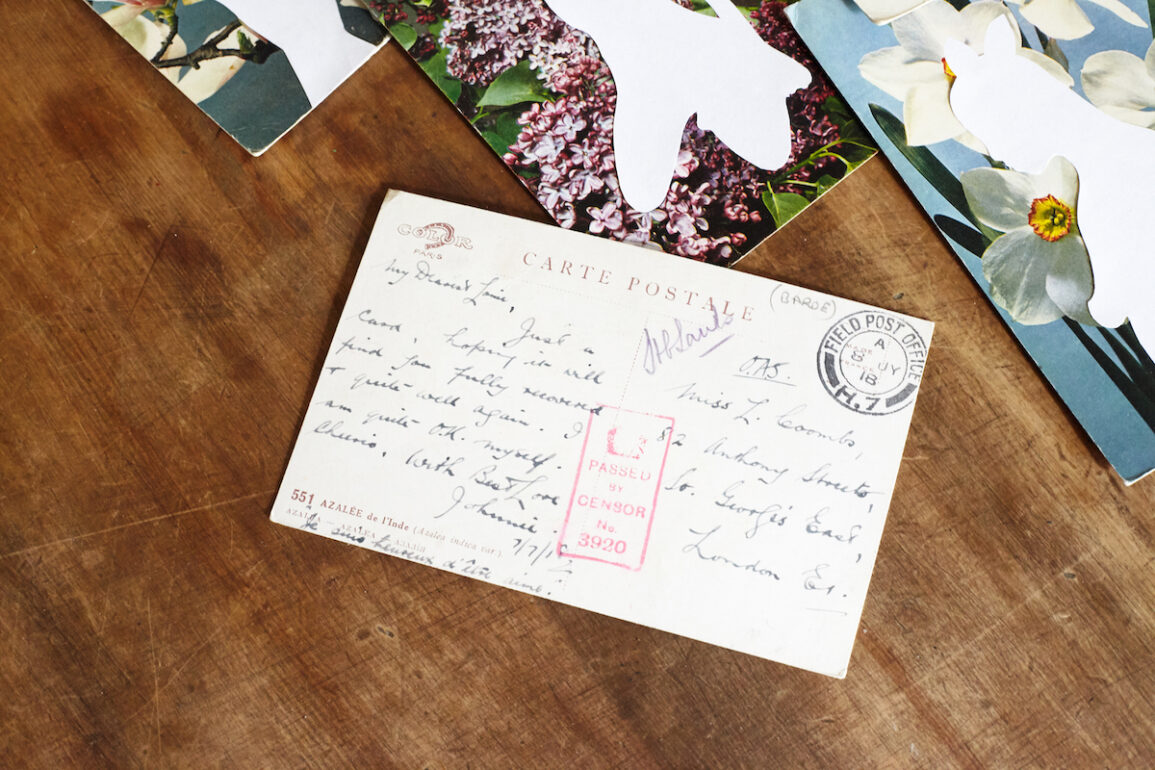 COLOR
PARIS
CARTE POSTALE
(BARDE)
My Dearest
Just a
Card, hoping it will
find you fully recovered
& quite well again. I
am quite O.K. myself.
Cheerio. With Best Love
Johnnie.
7/7/18
551 AZALÉE de l'Inde (Azalea indica var.)
AZALEA — AZALEA — AZALIE
Je suis heureux d'être aimé.
OAS.
Miss L. Coombs,
82 Anthony Street,
St. George's East,
London E1.
PASSED
BY
CENSOR
No.
3920
FIELD POST OFFICE
A
8 JY
18
H.7